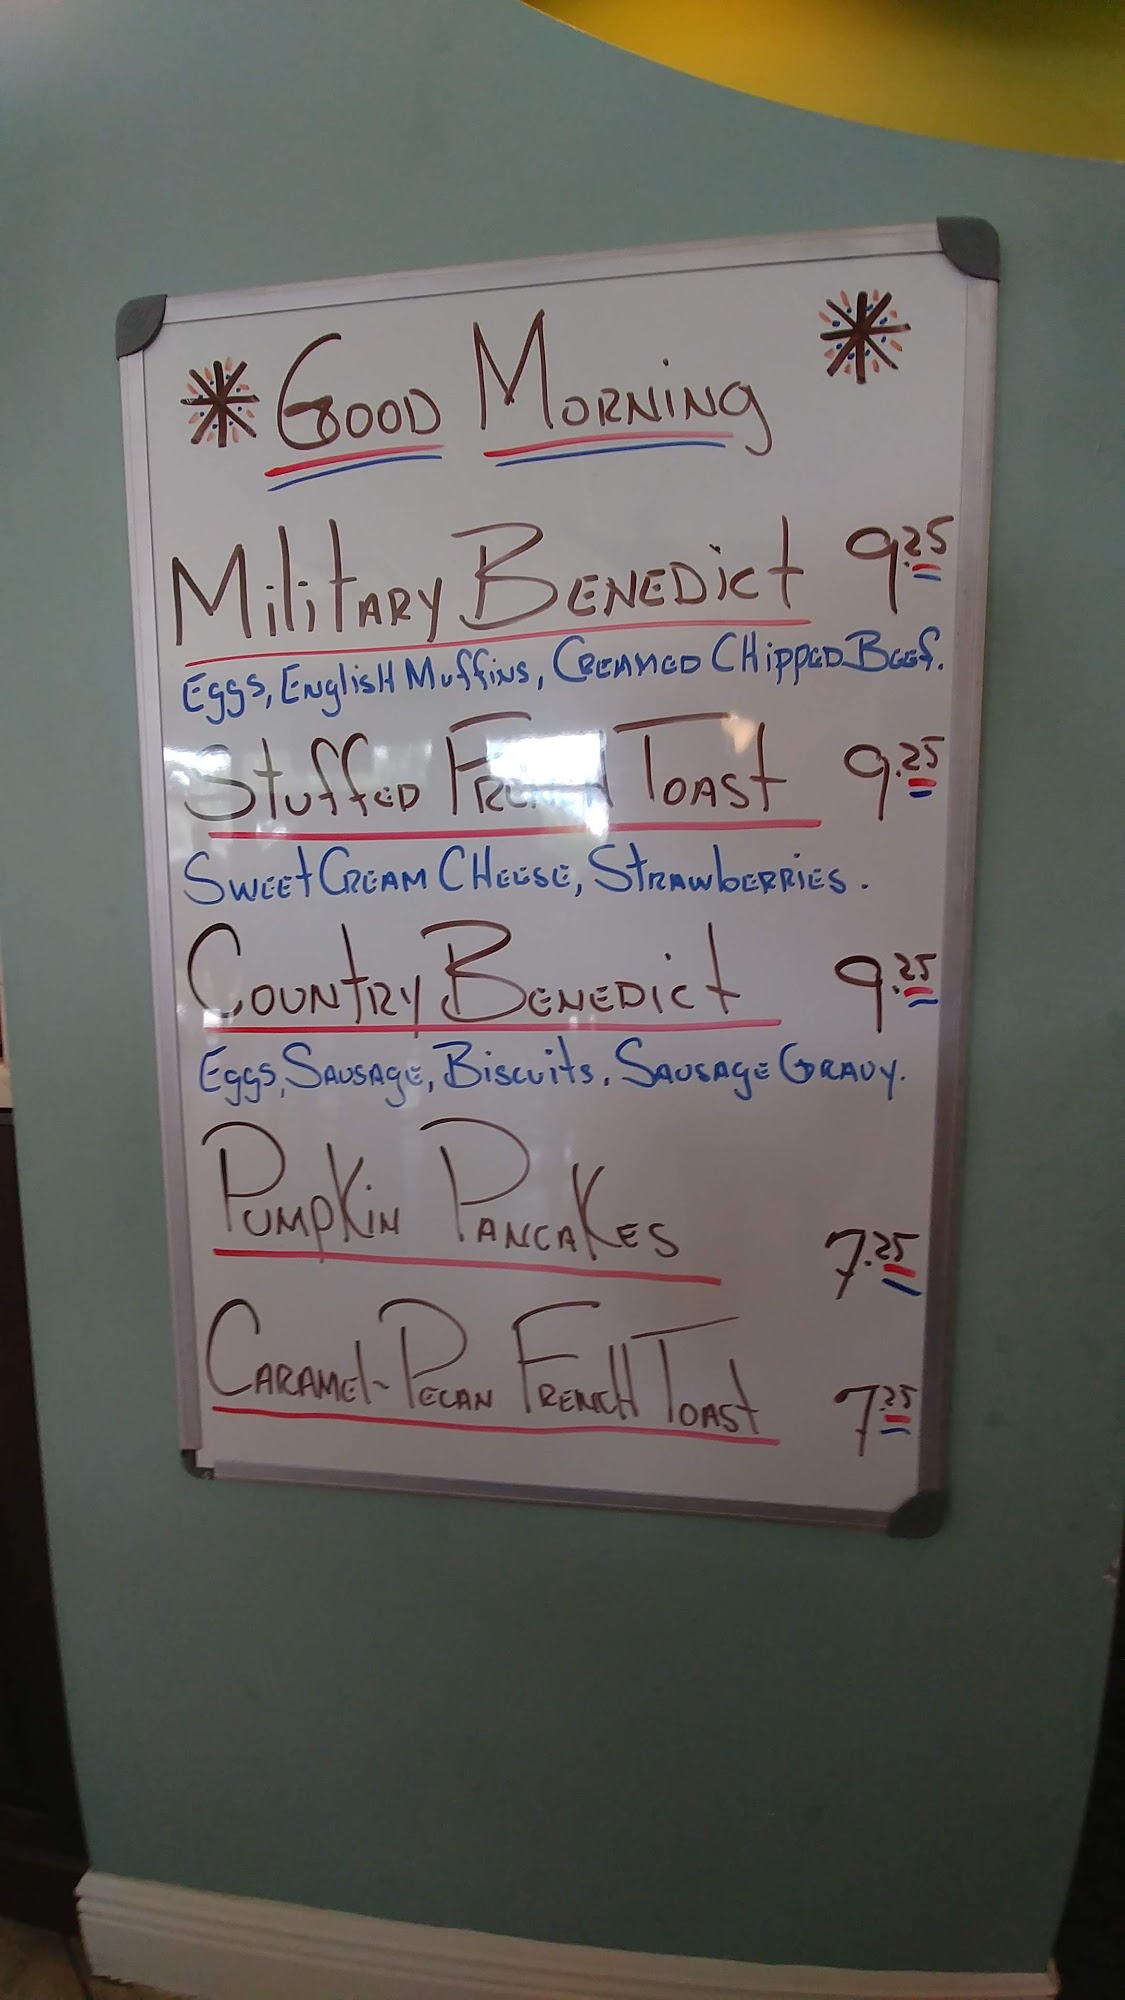 Good Morning
Military Benedict 9.25
Eggs, English Muffins, Creamed Chipped Beef.
Stuffed French Toast 9.25
Sweet Cream Cheese, Strawberries.
Country Benedict 9.25
Eggs, Sausage, Biscuits, Sausage Gravy.
Pumpkin Pancakes 7.25
Caramel-Pecan French Toast 7.25